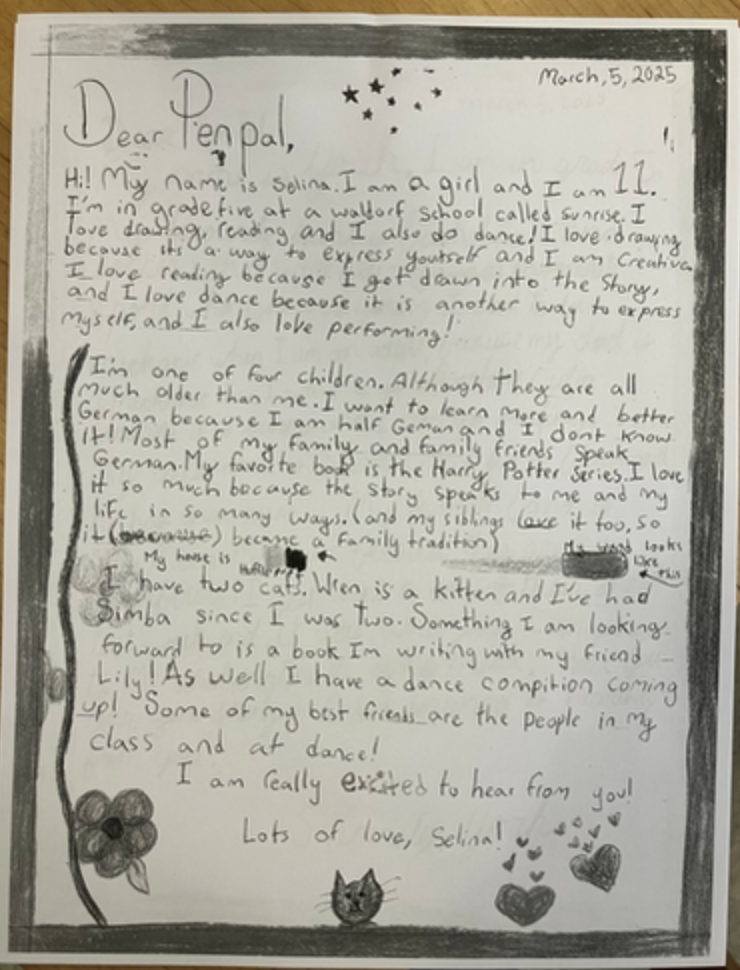 March, 5, 2025
Dear Penpal,
Hi! My name is Selina. I am a girl and I am 11.
I'm in grade five at a waldorf school called sunrise. I
love drawing, reading and I also do dance! I love drawing
because its a way to express yourself and I am Creative.
I love reading because I get drawn into the Story,
and I love dance because it is another way to express
myself, and I also love performing!
I'm one of four children. Although they are all
much older than me. I want to learn more and better
German because I am half Geman and I dont know
it! Most of my family and family friends speak
German. My favorite book is the Harry Potter series. I love
it so much because the story speaks to me and my
life in so many ways. (and my siblings love it too, so
it (because) became a family tradition)
My house is
My wand looks
like
this
I have two cats. Wren is a kitten and I've had
Simba since I was two. Something I am looking
forward to is a book Im writing with my friend
Lily! As well I have a dance compition coming
up! Some of my best friends are the people in my
class and at dance!
I am really excited to hear from you!
Lots of love, Selina!